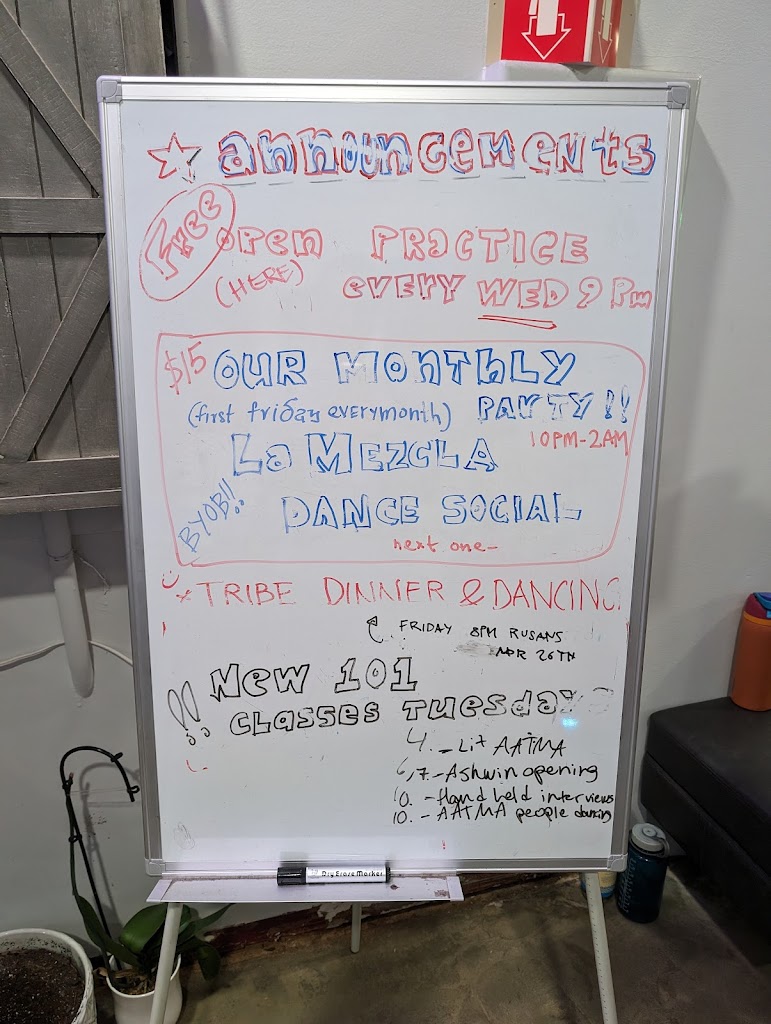 announcements
Free
OPEN PRACTICE
(HERE) EVERY WED 9 Pm
$15 OUR MONTHLY
(first friday everymonth) PARTY!!
10PM-2AM
La MEZCLA
BYOB!!
DANCE SOCIAL
next one-
TRIBE DINNER & DANCING
FRIDAY 8PM RUSANS
APR 26TH
!! New 101
CLASSES TUESday
4. - Lit AATMA
6,7 - Ashwin opening
10. - Hand held interviews
10. - AATMA people dancing
Dry Erase Marker